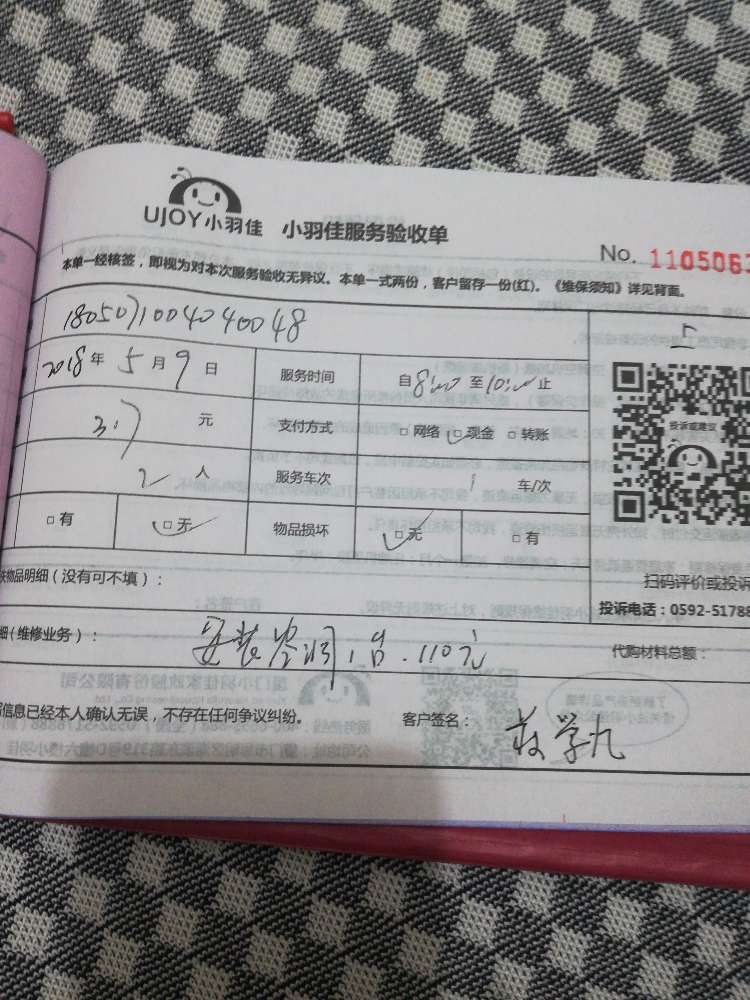 UJOY小羽佳 小羽佳服务验收单
No. 1105063
本单一经核签，即视为对本次服务验收无异议。本单一式两份，客户留存一份(红)。《维保须知》详见背面。
1805071004040048
2018年5月9日 服务时间 自8:00至10:00止
元 支付方式 □网络 □现金 □转账
2人 服务车次 1 车/次
□有 □无 物品损坏 □无 □有
投诉或建议
物品明细（没有可不填）： 扫码评价或投诉
投诉电话：0592-51788
细(维修业务)： 安装 1台.110元 代购材料总额：
信息已经本人确认无误，不存在任何争议纠纷。 客户签名：